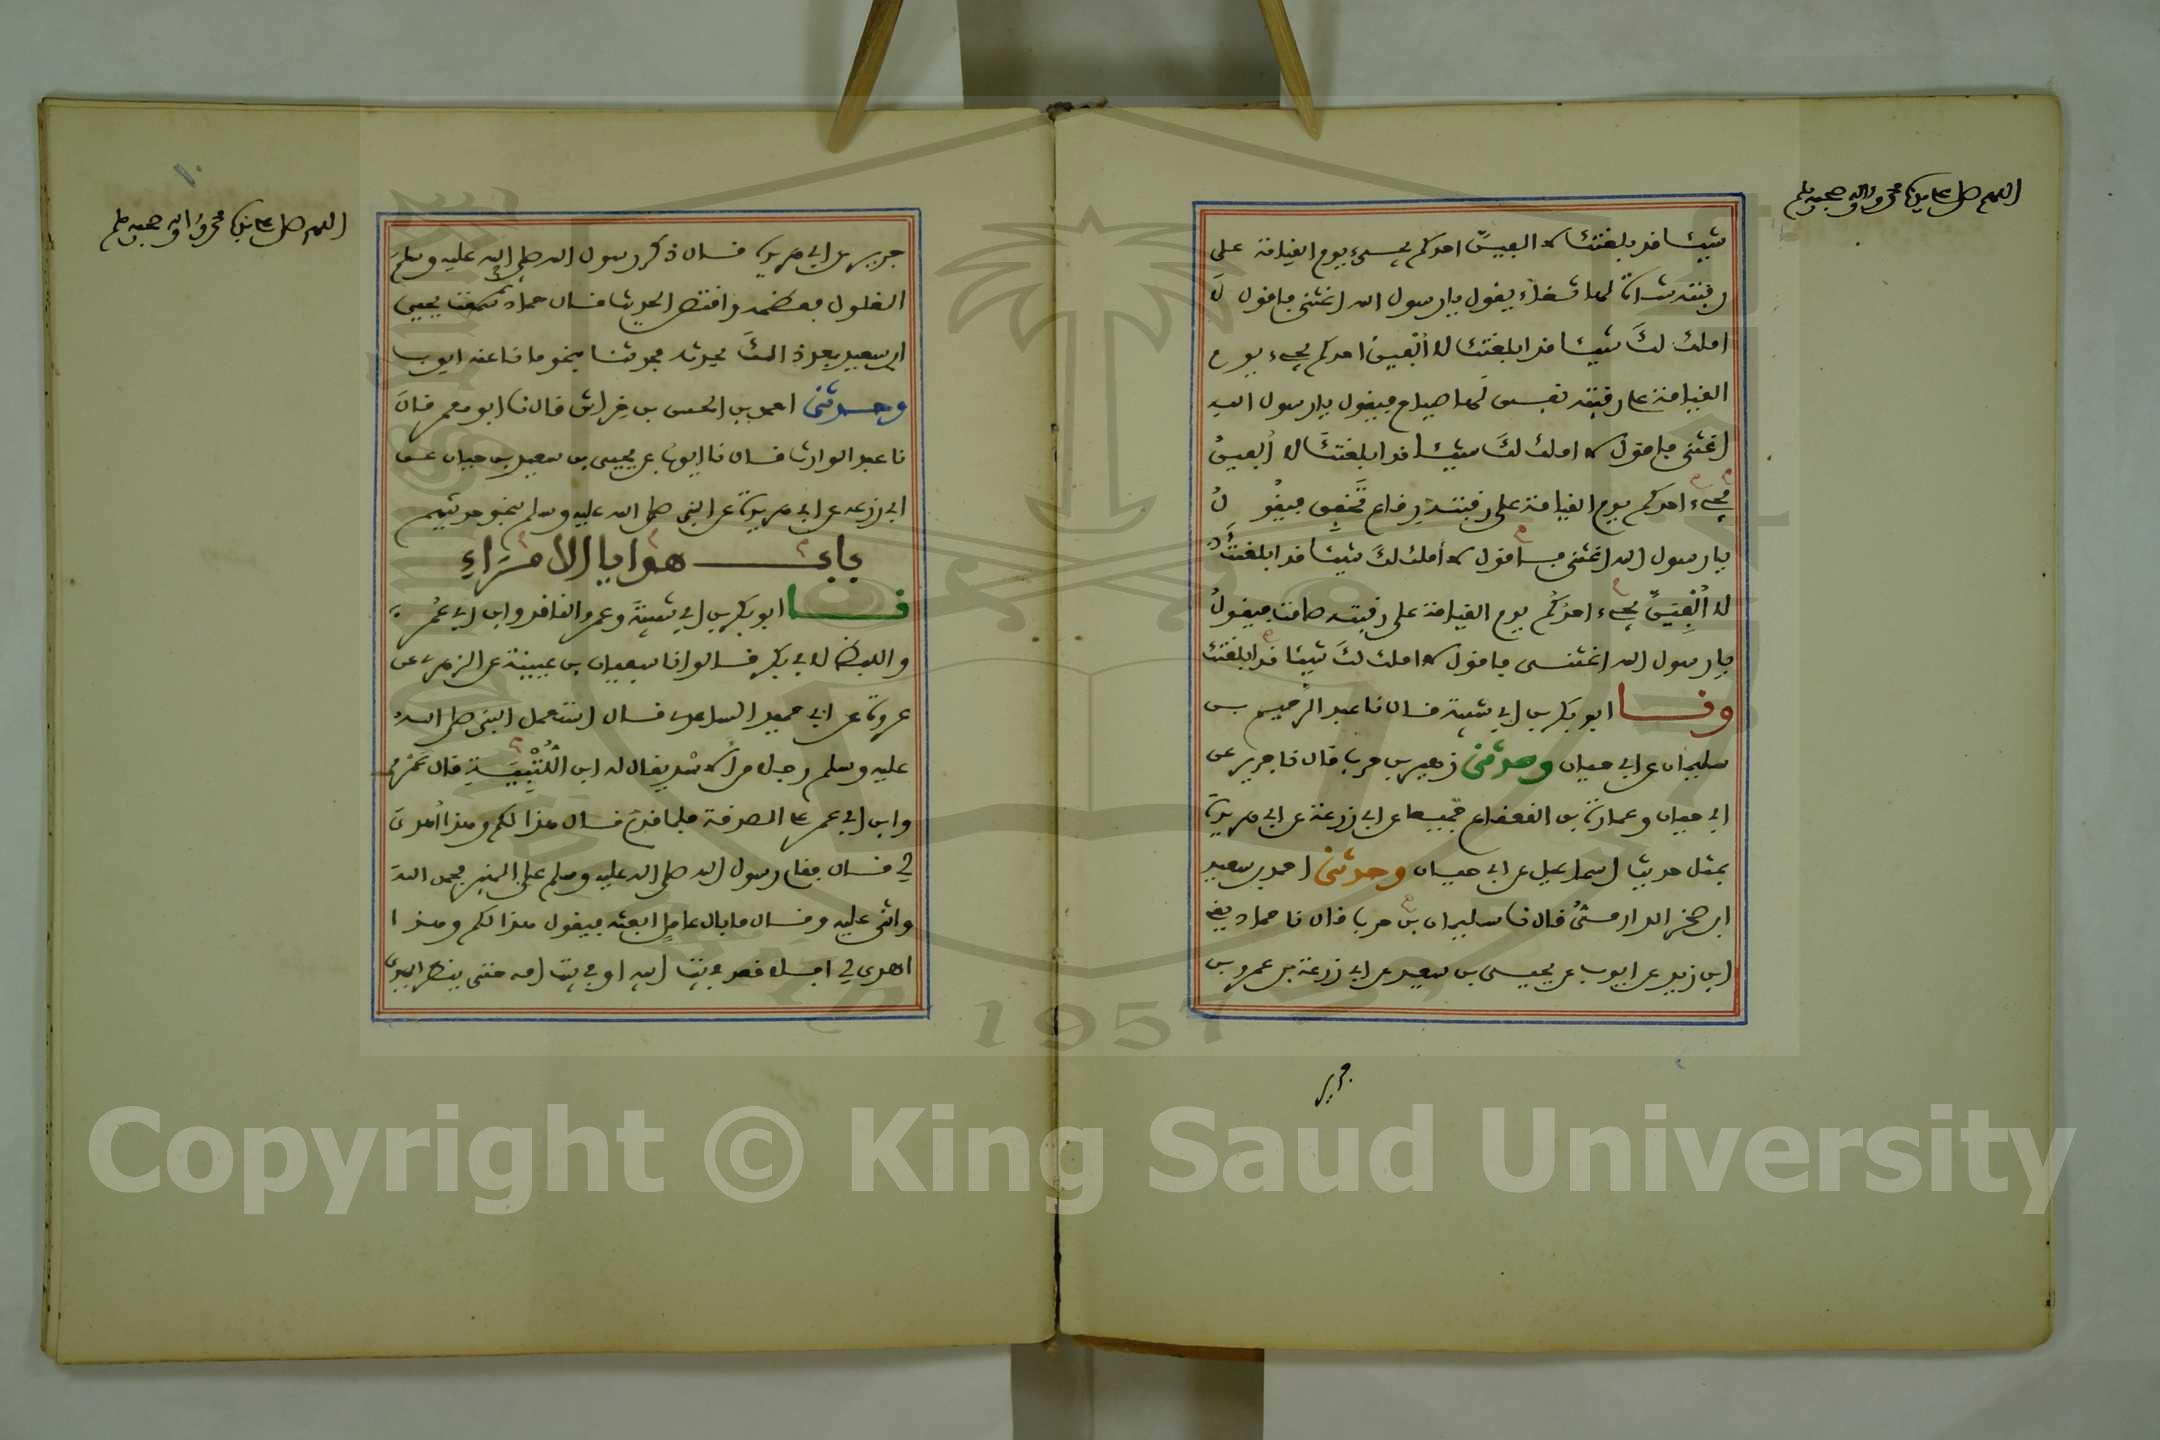 اللهم صل على نبينا محمد وآله وصحبه وسلم
شيئا قد بلغتك لا الفين احدكم يجيء يوم القيامة على
رقبته شاة لها ثغاء يقول يا رسول الله اغثني فاقول لا
املك لك شيئا قد ابلغتك لا الفين احدكم يجيء يوم
القيامة على رقبته نفس لها صياح فيقول يا رسول الله
اغثني فاقول لا املك لك شيئا قد ابلغتك لا الفين
يجيء احدكم يوم القيامة على رقبته رقاع تخفق فيقول
يا رسول الله اغثني فاقول لا أملك لك شيئا قد ابلغتك
لا ألفين يجيء احدكم يوم القيامة على رقبته صامت فيقول
يا رسول الله اغثني فاقول لا املك لك شيئا قد ابلغتك
ونا ابو بكر بن ابي شيبة قال نا عبد الرحيم بن
سليمان عن ابي حيان وحدثني زهير بن حرب قال نا جرير عن
ابي حيان وعمارة بن القعقاع جميعا عن ابي زرعة عن ابي هريرة
بمثل حديث اسماعيل عن ابي حيان وحدثني احمد بن سعيد
ابن صخر الدارمي قال نا سليمان بن حرب قال نا حماد يعني
ابن زيد عن ايوب عن يحيى بن سعيد عن ابي زرعة بن عمرو بن
جرير
اللهم صل على نبينا محمد وآله وصحبه وسلم
١٠
جرير عن ابي هريرة قال ذكر رسول الله صلى الله عليه وسلم
الغلول فعظمه واقتص الحديث قال حماد ثم سمعت يحيى
ابن سعيد بعد ذلك يحدثه فحدثنا بنحو ما نا عنه ايوب
وحدثني احمد بن الحسن بن خراش قال نا ابو معمر قال
نا عبد الوارث قال نا ايوب عن يحيى بن سعيد بن حيان عن
ابي زرعة عن ابي هريرة عن النبي صلى الله عليه وسلم بنحو حديثهم
باب هدايا الامراء
نا ابو بكر بن ابي شيبة وعمرو الناقد وابن ابي عمر
واللفظ لابي بكر قالوا نا سفيان بن عيينة عن الزهري عن
عروة عن ابي حميد الساعدي قال استعمل النبي صلى الله
عليه وسلم رجلا من الاسد يقال له ابن اللتبية قال عمرو
وابن ابي عمر على الصدقة فلما قدم قال هذا لكم وهذا أهدي
لي قال فقام رسول الله صلى الله عليه وسلم على المنبر فحمد الله
واثنى عليه وقال ما بال عامل ابعثه فيقول هذا لكم وهذا
اهدي لي افلا قعد في بيت ابيه او في بيت امه حتى ينظر ايهدى
Copyright © King Saud University
1957